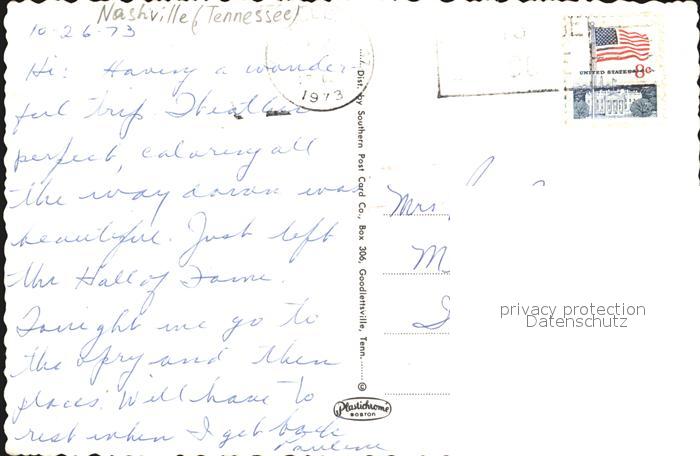 Nashville (Tennessee)
10-26-73
Hi: Having a wonder-
ful trip. Weather
perfect, coloring all
the way down was
beautiful. Just left
the Hall of Fame.
Tonight we go to
the Opry and then
places. Will have to
rest when I get back
Pauline
1973
Dist. by Southern Post Card Co., Box 306, Goodlettsville, Tenn. ©
Plastichrome
BOSTON
UNITED STATES 8c
Mrs
M
privacy protection
Datenschutz